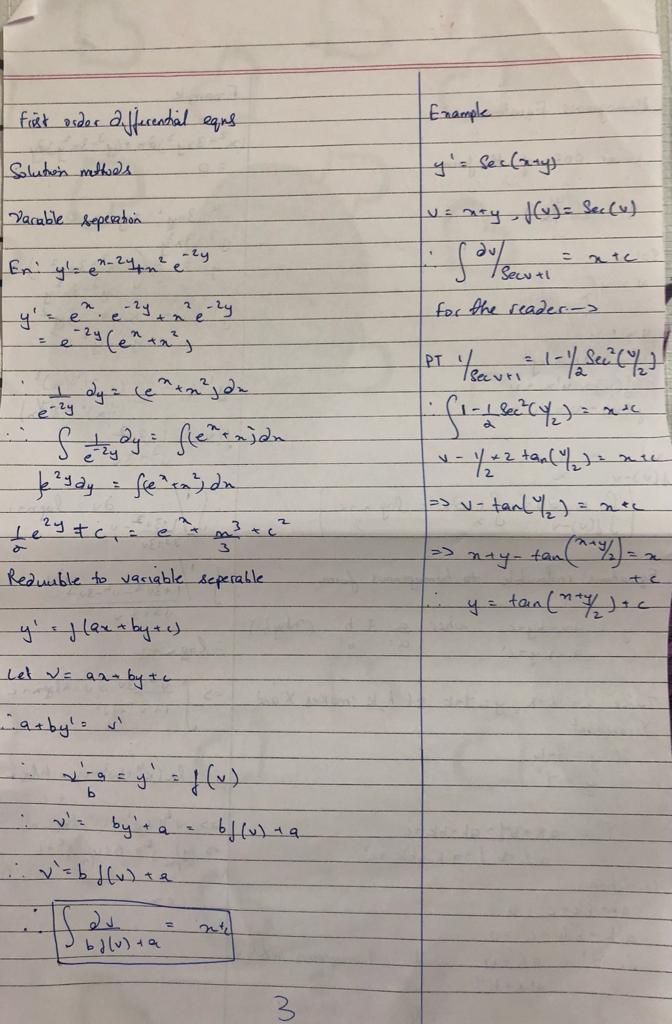 First order differential eqns
Solution methods
Variable seperation
En: y' = e^{x-2y} + x² e^{-2y}
y' = e^x · e^{-2y} + x² e^{-2y}
= e^{-2y} (e^x + x²)
∴ 1/e^{-2y} dy = (e^x + x²) dx
∴ ∫ 1/e^{-2y} dy = ∫(e^x + x) dx
∫e^{2y} dy = ∫(e^x + x²) dx
1/2 e^{2y} + c₁ = e^x + x³/3 + c²
Reducible to variable seperable
y' = f(ax + by + c)
Let v = ax + by + c
∴ a + by' = v'
∴ (v' - a)/b = y' = f(v)
∴ v' = by' + a = bf(v) + a
∴ v' = b f(v) + a
∴ ∫ dv/(b f(v) + a) = x + c
Example
y' = Sec(x+y)
v = x+y, f(v) = Sec(v)
∴ ∫ dv/(Secv+1) = x + c
for the reader -->
PT 1/(Secv+1) = 1 - 1/2 Sec²(v/2)
∴ ∫1 - 1/2 Sec²(v/2) = x + c
v - 1/2 × 2 tan(v/2) = x + c
=> v - tan(v/2) = x + c
=> x + y - tan((x+y)/2) = x
+ c
∴ y = tan((x+y)/2) + c
3